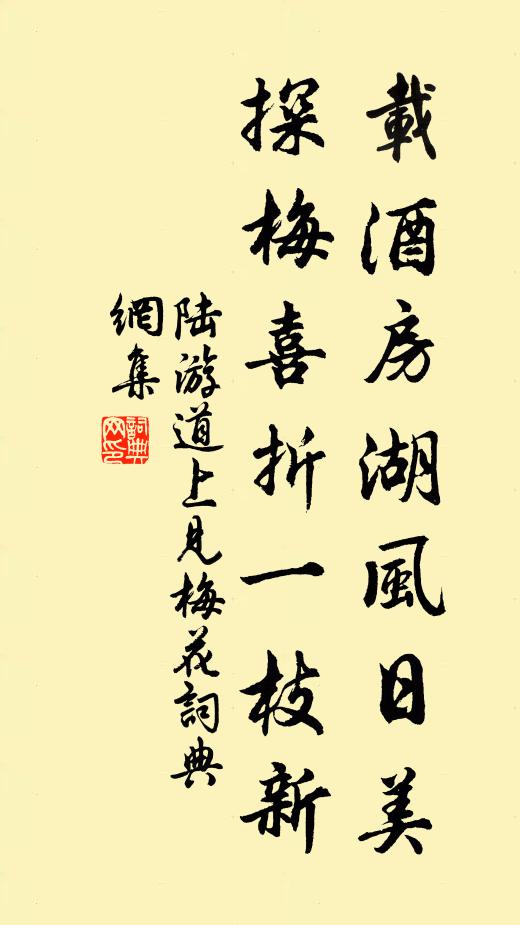 載酒房湖風日美
探梅喜折一枝新
陆游道上見梅花詞典
網集
詞典
网印